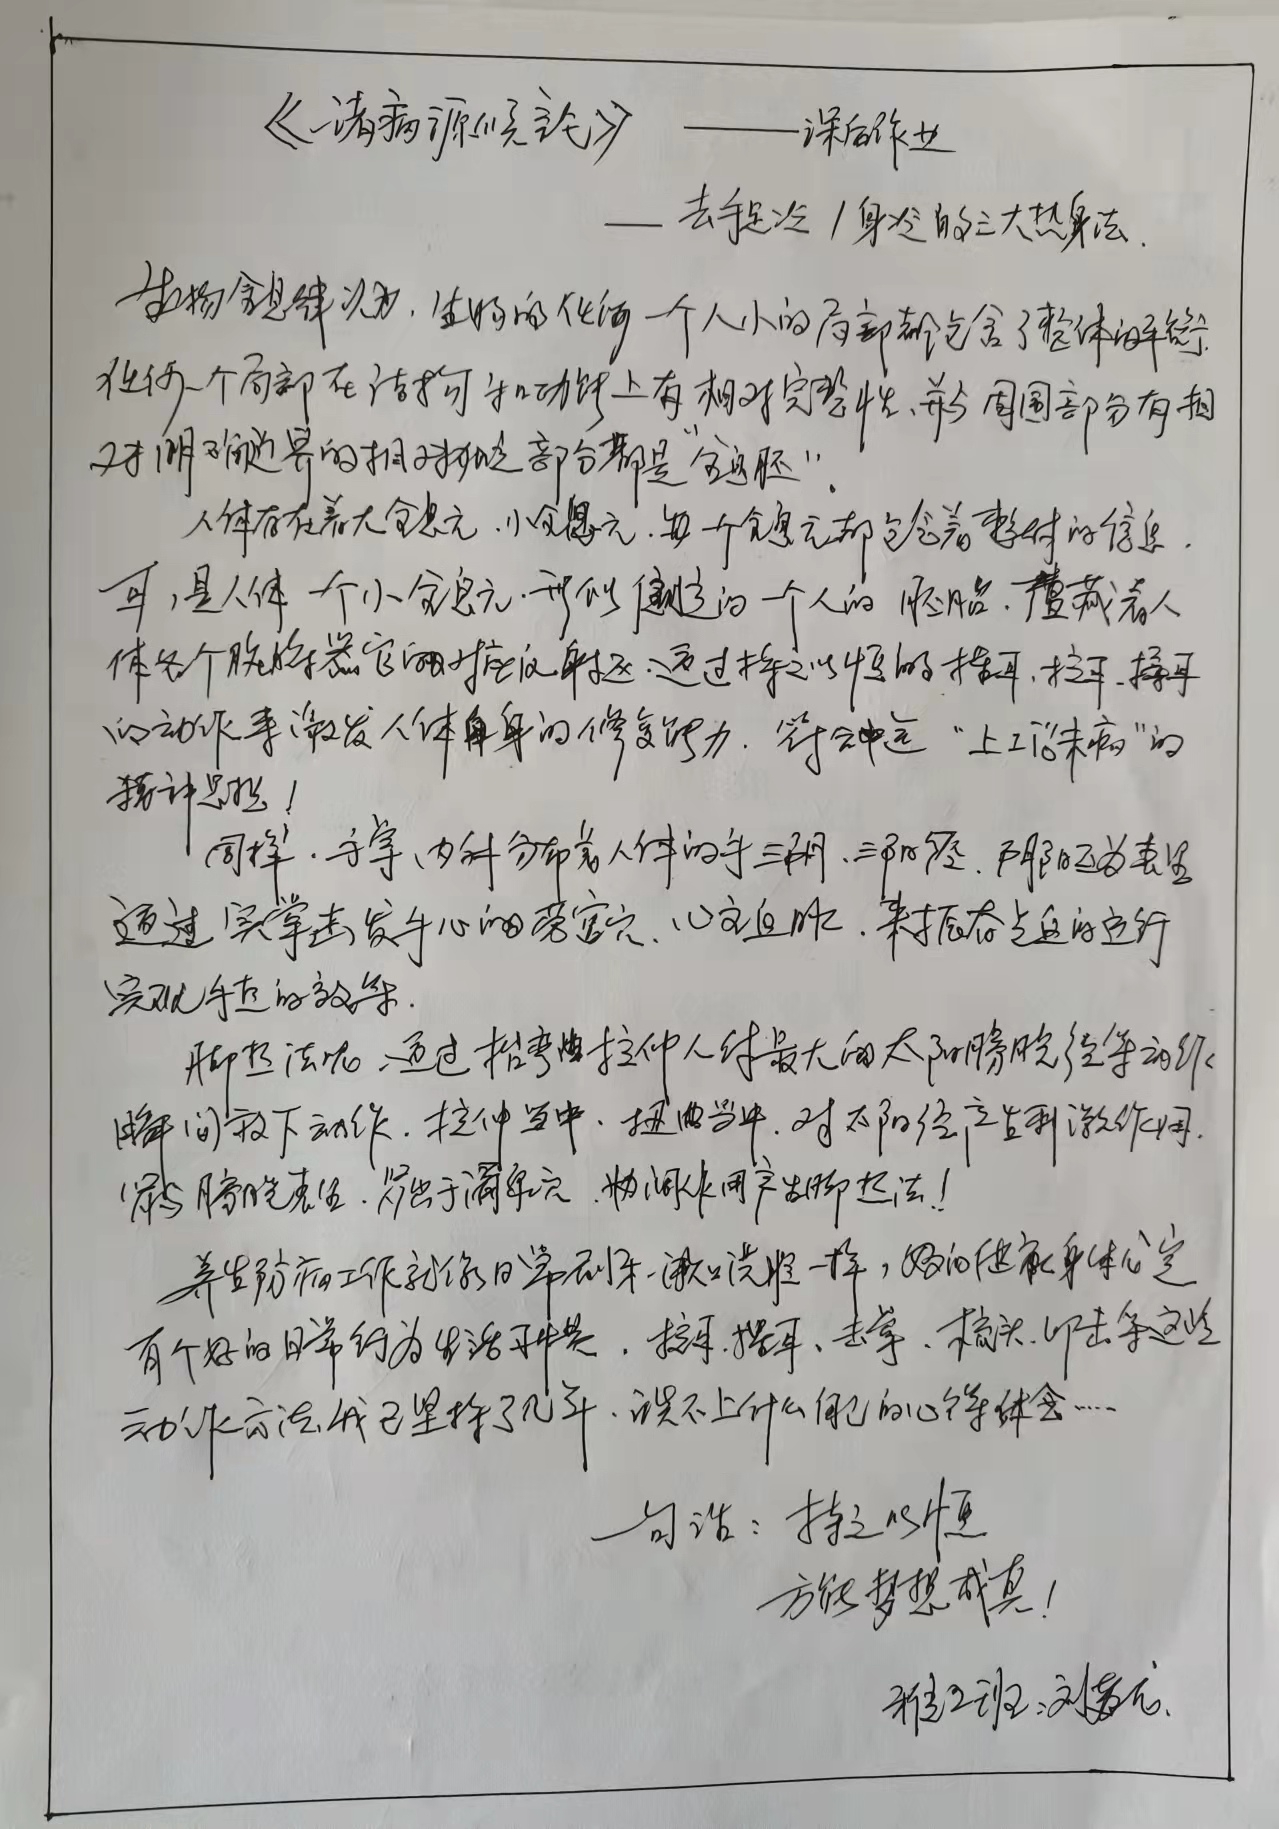 《诸病源候论》 ——课后作业
—去手足冷/身冷的三大热身法.
生物全息律认为,生物的任何一个人小的局部都包含了整体的
任何一个局部在结构和功能上有相对完整性、并与周围部分有相
对明确边界的相对独立部分都是“全息胚”.
人体存在着大全息元、小全息元.每一个全息元都包含着整体的信息.
耳,是人体一个小全息元.形似倒立的一个人的胚胎.蕴藏着人
体各个脏腑器官的对应反射区.通过持之以恒的搓耳、拉耳、
的动作来激发人体自身的修复能力.符合中医“上工治未病”的
精神思想!
同样.手掌、内科分布着人体的手三阴、三阳经.阴阳互为表里
通过实掌击发手心的劳宫穴、心主血脉.来振奋气血的运行
实现手热的效果.
脚热法呢.通过 弯曲拉伸人体最大的太阳膀胱经等动作
瞬间放下动作.拉伸当中.扭曲当中.对太阳经产生刺激作用.
肾与膀胱表里.肾出于涌泉穴.协调作用产生脚热法!
养生防病工作就像日常刷牙、漱口洗脸一样,好的健康身体必定
有个好的日常行为生活 .拉耳.搓耳、击掌、 头.叩击等这些
动作方法我已坚持了几年.谈不上什么自己的心得体会……
一句话:持之以恒
方能梦想成真!
雅2班:刘